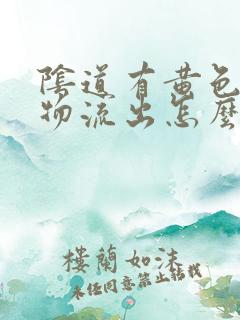 陰道有黄色
物流出怎麼
樓蘭如沫
未经同意禁止转载